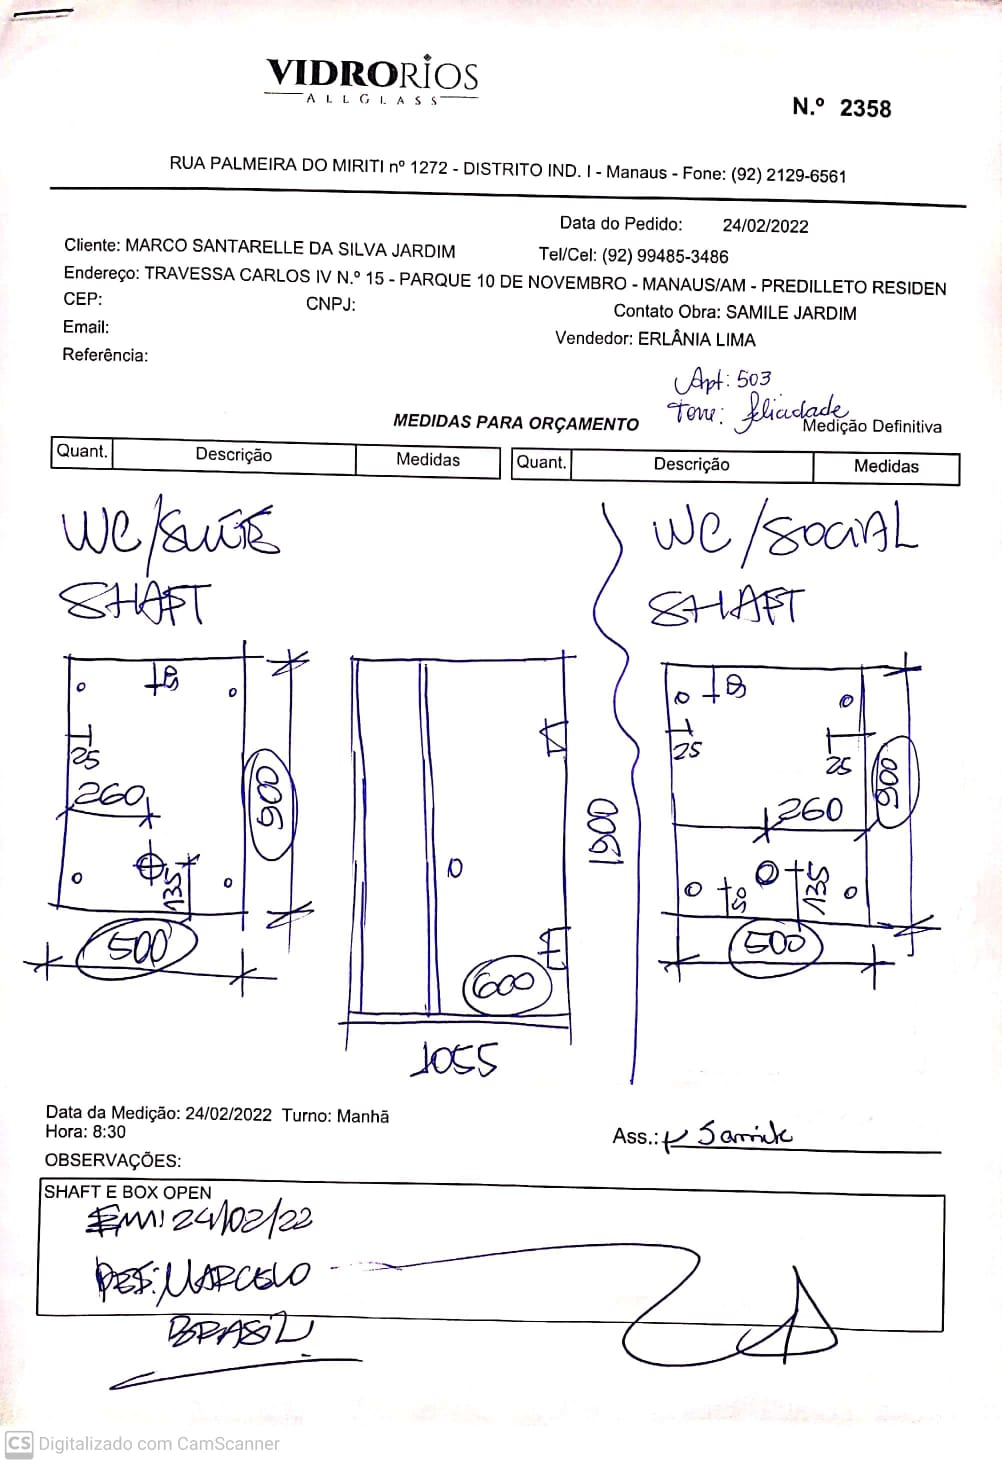 VIDRORIOS
ALLGLASS
N.º 2358
RUA PALMEIRA DO MIRITI nº 1272 - DISTRITO IND. I - Manaus - Fone: (92) 2129-6561
Data do Pedido: 24/02/2022
Cliente: MARCO SANTARELLE DA SILVA JARDIM
Tel/Cel: (92) 99485-3486
Endereço: TRAVESSA CARLOS IV N.º 15 - PARQUE 10 DE NOVEMBRO - MANAUS/AM - PREDILLETO RESIDEN
CEP:
CNPJ:
Contato Obra: SAMILE JARDIM
Email:
Vendedor: ERLÂNIA LIMA
Referência:
Apt: 503
Torre: felicidade
MEDIDAS PARA ORÇAMENTO
Medição Definitiva
Quant. Descrição Medidas
Quant. Descrição Medidas
WC/SUÍTE
SHAFT
WC/SOCIAL
SHAFT
25
260
900
135
500
1900
600
1055
25
25
900
260
135
50
500
Data da Medição: 24/02/2022 Turno: Manhã
Hora: 8:30
Ass.: Samile
OBSERVAÇÕES:
SHAFT E BOX OPEN
EM: 24/02/22
RES: MARCELO
BRASIL
CS Digitalizado com CamScanner